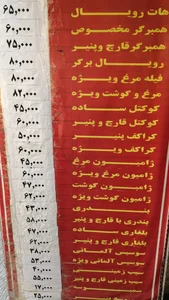 هات رویال ۶۵,۰۰۰
همبرگر مخصوص ۶۰,۰۰۰
همبرگر قارچ و پنیر ۷۵,۰۰۰
رویال برگر ۸۰,۰۰۰
فیله مرغ ویژه ۸۰,۰۰۰
مرغ و گوشت ویژه ۸۲,۰۰۰
کوکتل ساده ۴۵,۰۰۰
کوکتل قارچ و پنیر ۶۰,۰۰۰
کراکف پنیر ۵۰,۰۰۰
کراکف ویژه ۶۰,۰۰۰
ژامبون مرغ ۴۵,۰۰۰
ژامبون مرغ ویژه ۶۰,۰۰۰
ژامبون گوشت ۴۷,۰۰۰
ژامبون گوشت ویژه ۶۲,۰۰۰
بندری ۴۳,۰۰۰
بندری با قارچ و پنیر ۵۸,۰۰۰
بلغاری ساده ۴۷,۰۰۰
بلغاری قارچ و پنیر ۶۲,۰۰۰
سوسیس آلمانی ۳۸,۰۰۰
سوسیس آلمانی ویژه ۵۳,۰۰۰
سیب زمینی ۴۰,۰۰۰
سیب زمینی قارچ و پنیر ۵۵,۰۰۰